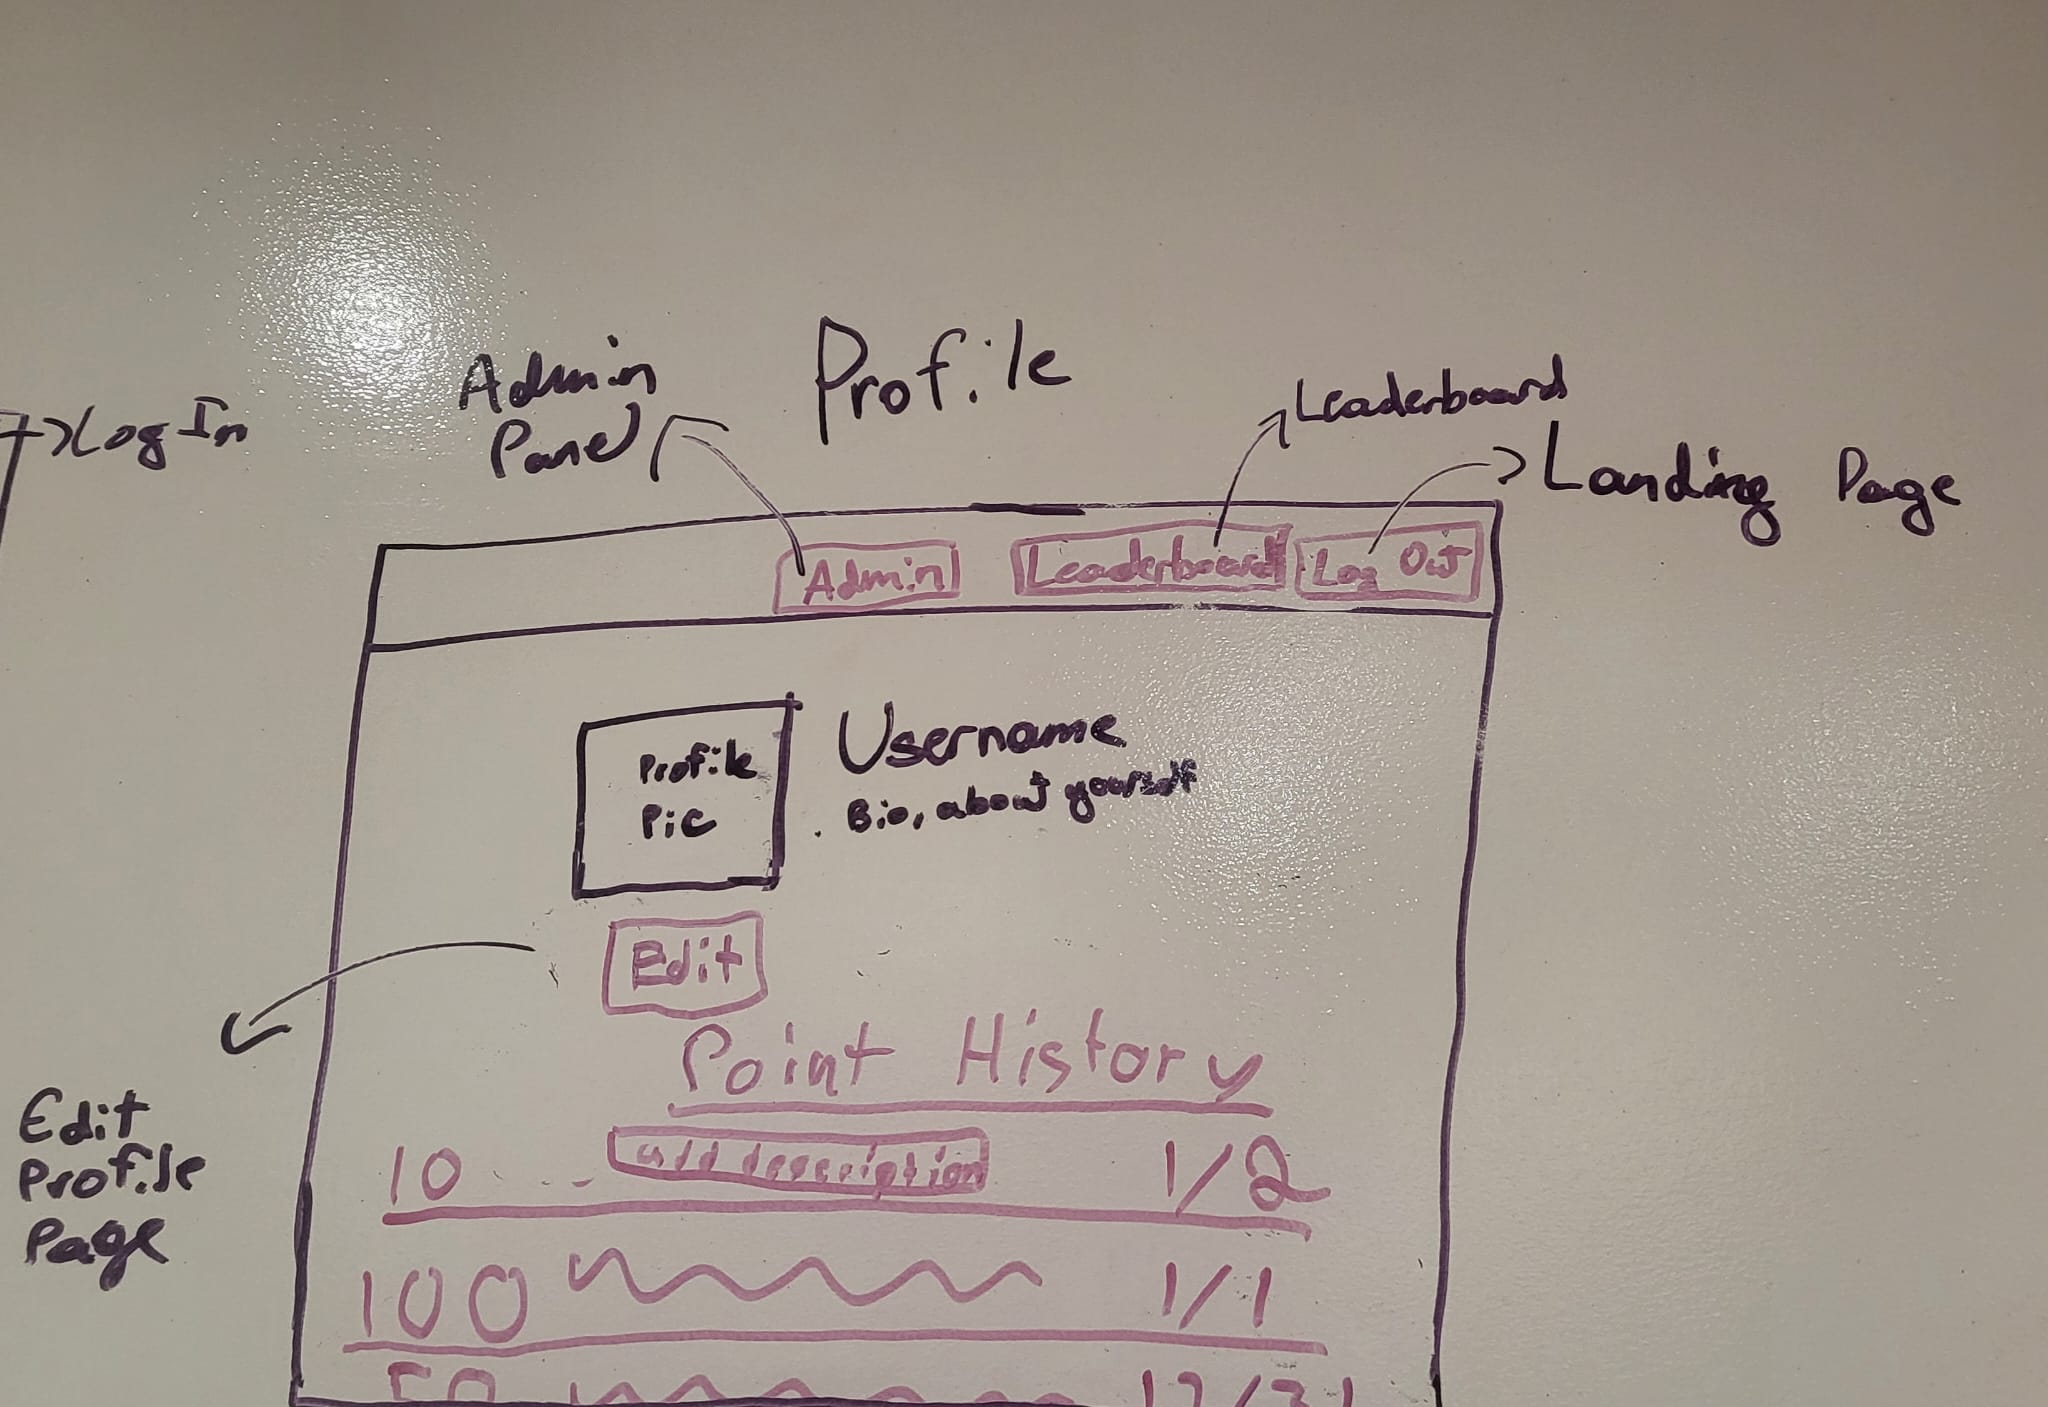 Profile
Admin
Panel
Leaderboard
Log In
Landing Page
Admin
Leaderboard
Log Out
Profile
Pic
Username
Bio, about yourself
Edit
Edit
Profile
Page
Point History
10 add description 1/2
100 1/1
50 12/31